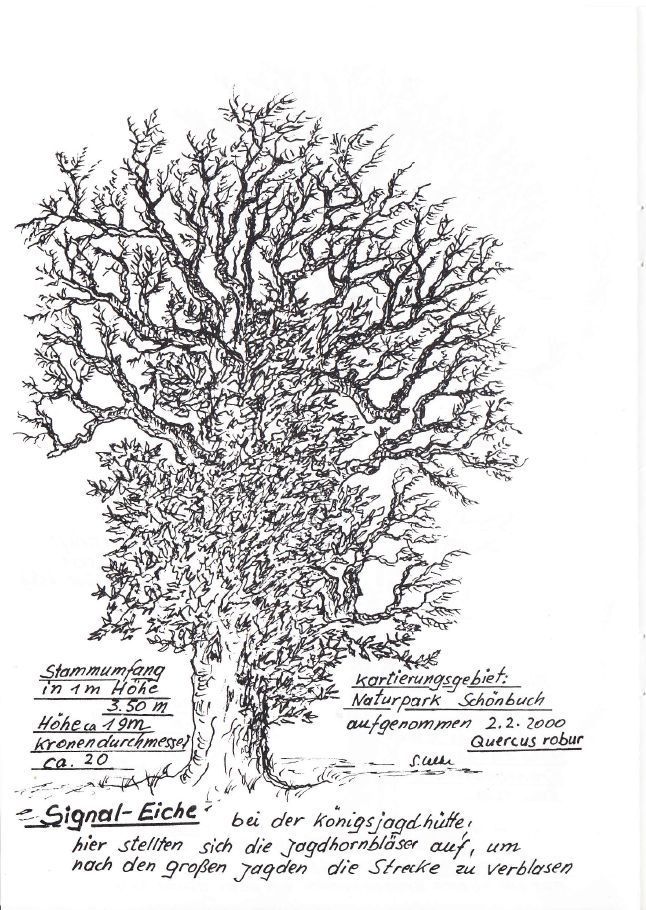 Stammumfang
in 1m Höhe
3.50 m
Höhe ca 19m
Kronendurchmesser
ca. 20
Kartierungsgebiet:
Naturpark Schönbuch
aufgenommen 2.2.2000
Quercus robur
Signal-Eiche bei der Königsjagdhütte,
hier stellten sich die Jagdhornbläser auf, um
nach den großen Jagden die Strecke zu verblasen